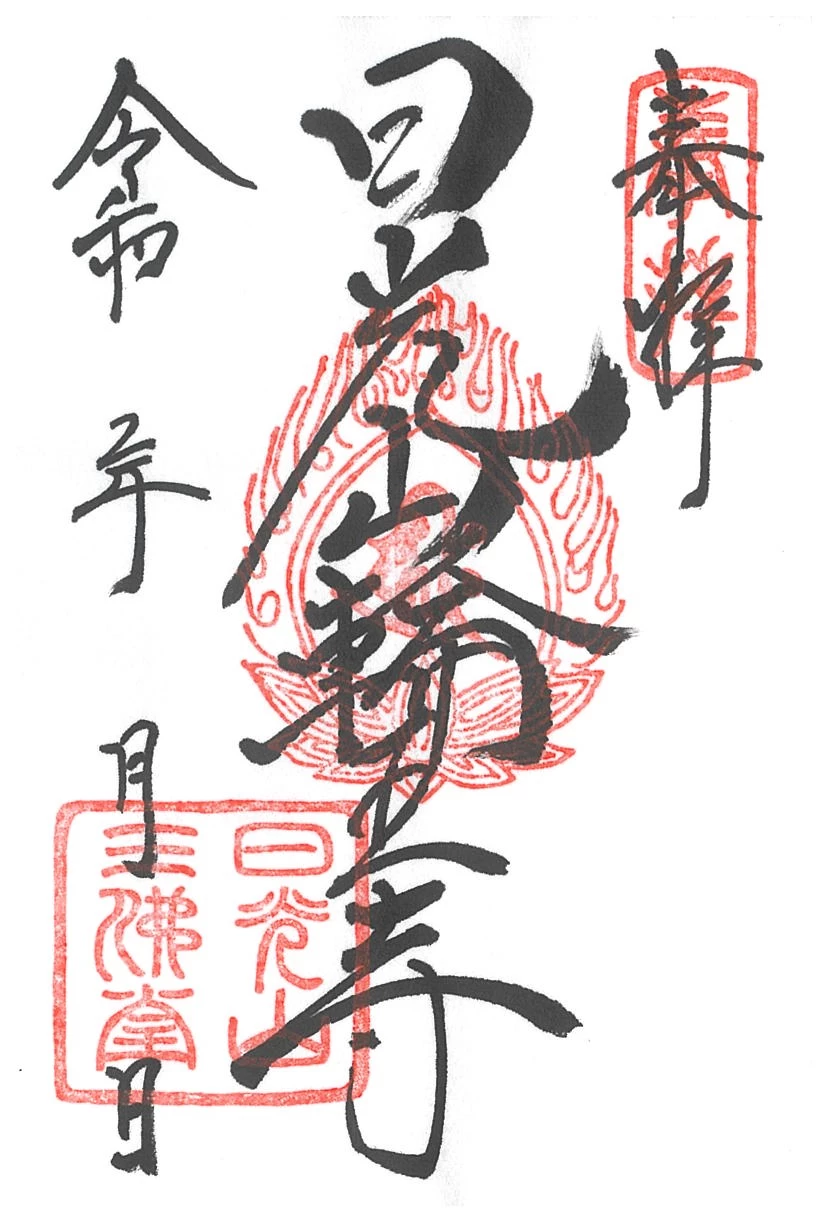 奉拝
奉拝
日光山輪王寺
令和 年 月 日
日光山
三佛堂